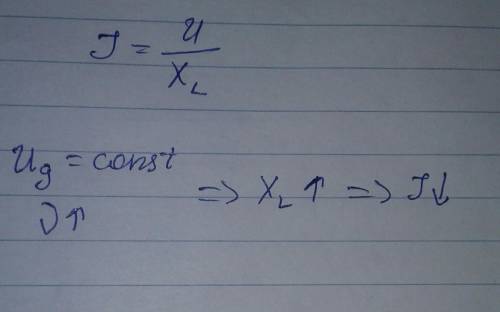 J = U / X_L
U_g = const
ν↑ => X_L ↑ => J↓